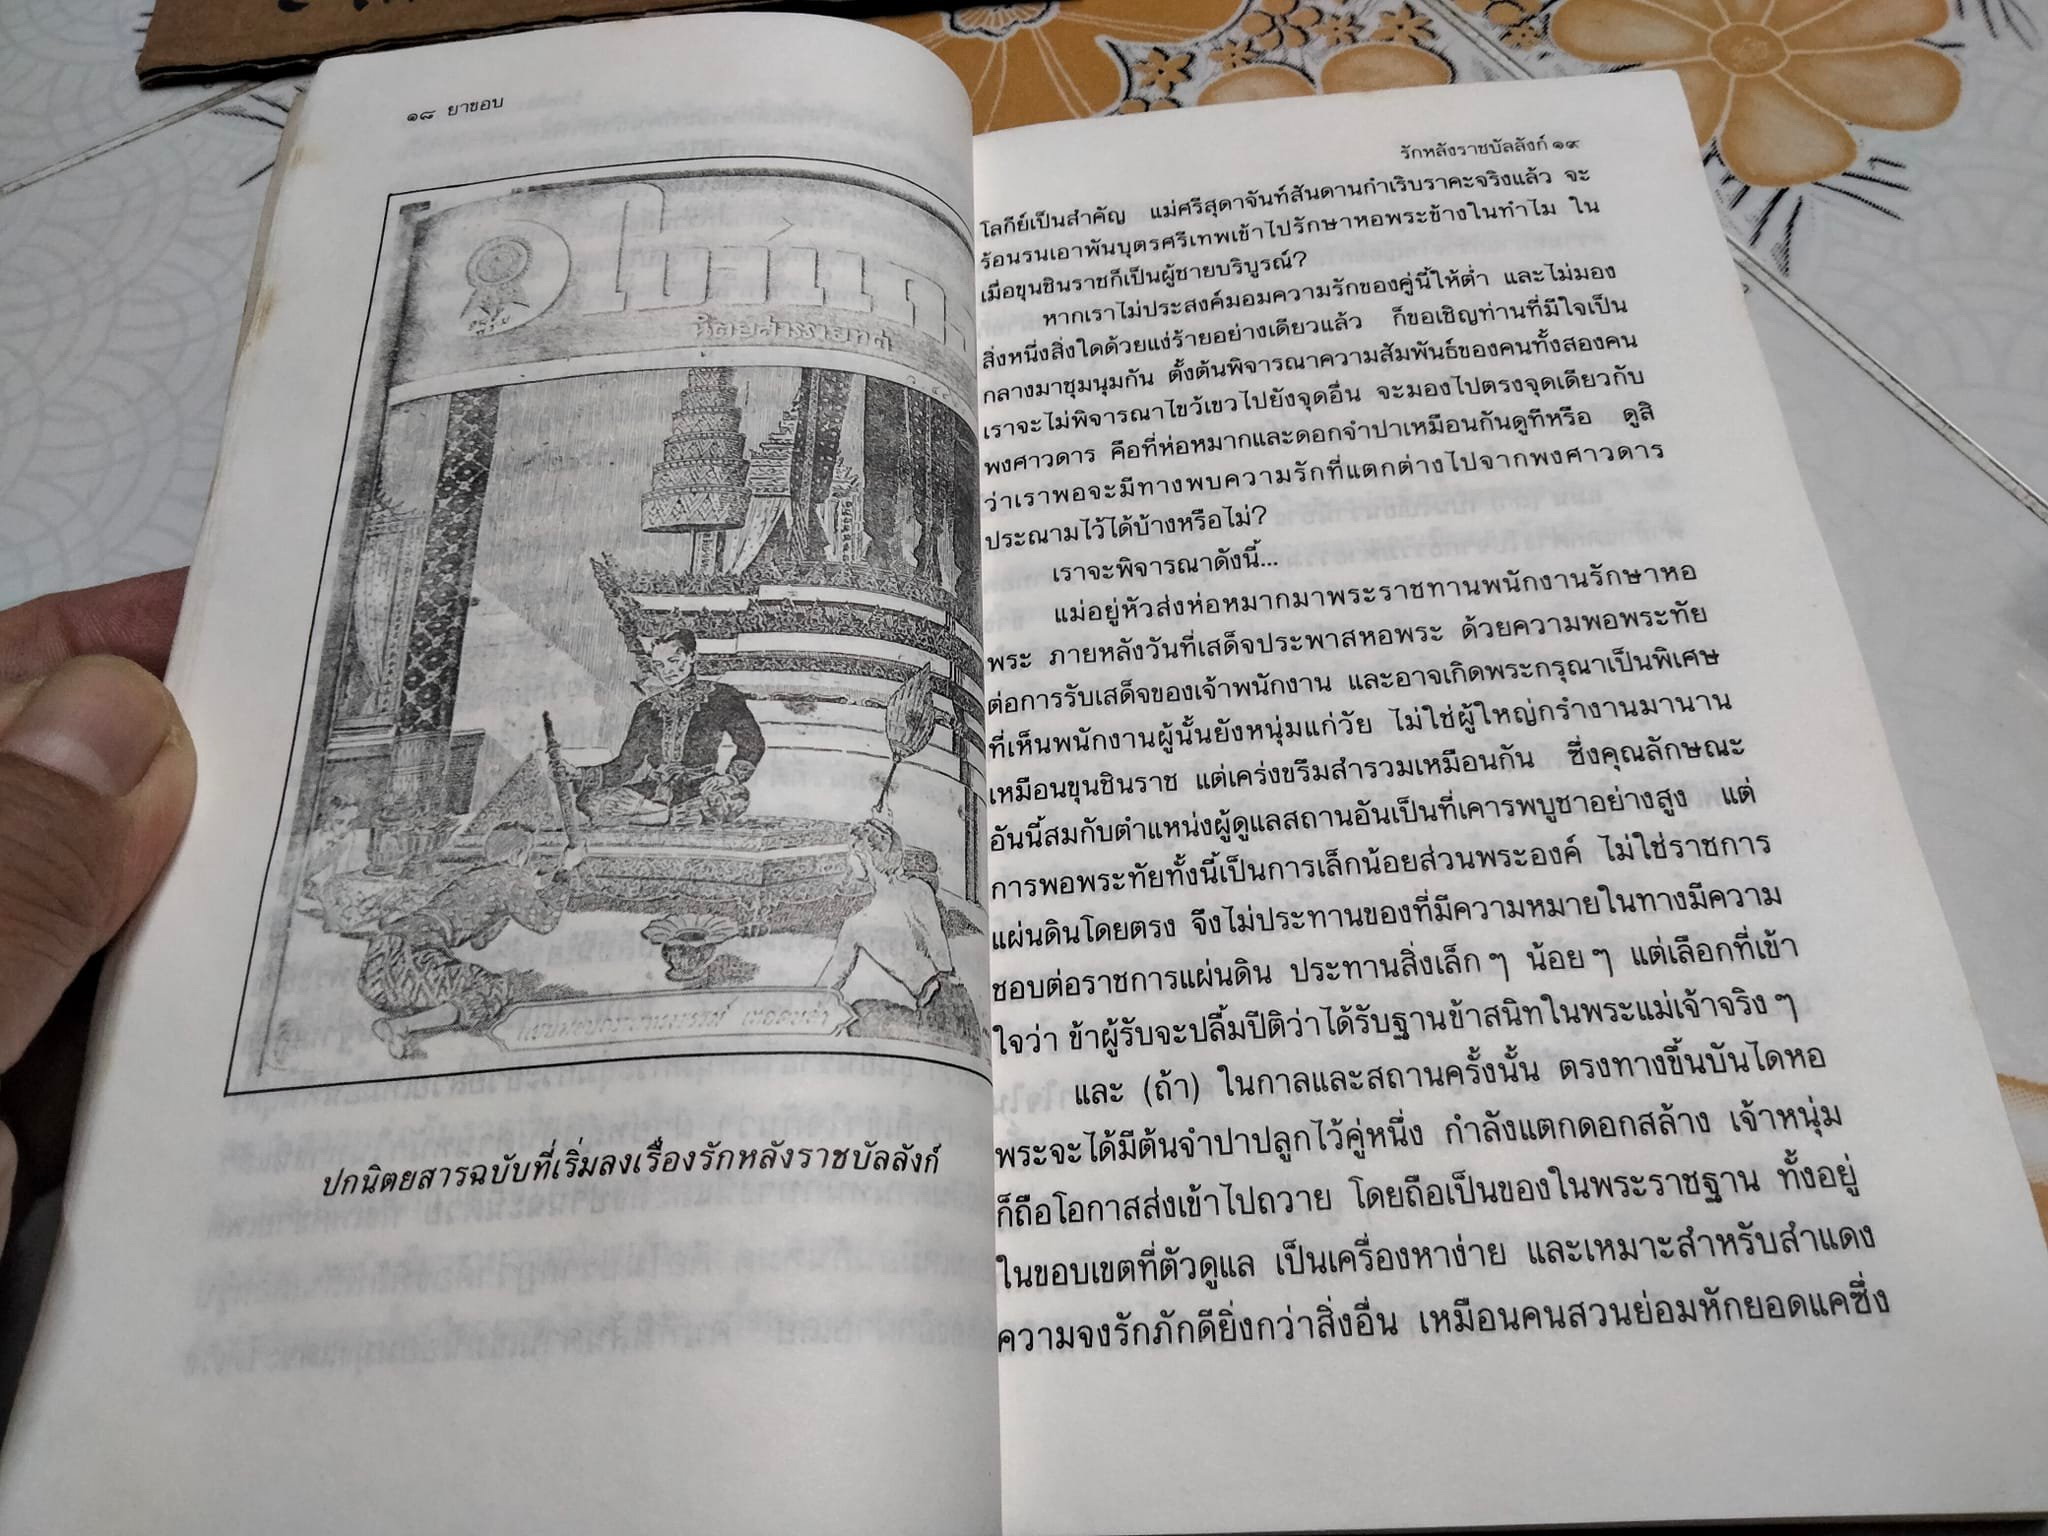 ๑๘ ยาขอบ
ปกนิตยสารฉบับที่เริ่มลงเรื่องรักหลังราชบัลลังก์
รักหลังราชบัลลังก์ ๑๙
โลกีย์เป็นสำคัญ แม่ศรีสุดาจันท์สันดานกำเริบราคะจริงแล้ว จะ
ร้อนรนเอาพันบุตรศรีเทพเข้าไปรักษาหอพระข้างในทำไม ใน
เมื่อขุนชินราชก็เป็นผู้ชายบริบูรณ์?
หากเราไม่ประสงค์มอมความรักของคู่นี้ให้ต่ำ และไม่มอง
สิ่งหนึ่งสิ่งใดด้วยแง่ร้ายอย่างเดียวแล้ว ก็ขอเชิญท่านที่มีใจเป็น
กลางมาชุมนุมกัน ตั้งต้นพิจารณาความสัมพันธ์ของคนทั้งสองคน
เราจะไม่พิจารณาไขว้เขวไปยังจุดอื่น จะมองไปตรงจุดเดียวกับ
พงศาวดาร คือที่ห่อหมากและดอกจำปาเหมือนกันดูทีหรือ ดูสิ
ว่าเราพอจะมีทางพบความรักที่แตกต่างไปจากพงศาวดาร
ประณามไว้ได้บ้างหรือไม่?
เราจะพิจารณาดังนี้...
แม่อยู่หัวส่งห่อหมากมาพระราชทานพนักงานรักษาหอ
พระ ภายหลังวันที่เสด็จประพาสหอพระ ด้วยความพอพระทัย
ต่อการรับเสด็จของเจ้าพนักงาน และอาจเกิดพระกรุณาเป็นพิเศษ
ที่เห็นพนักงานผู้นั้นยังหนุ่มแก่วัย ไม่ใช่ผู้ใหญ่กรำงานมานาน
เหมือนขุนชินราช แต่เคร่งขรึมสำรวมเหมือนกัน ซึ่งคุณลักษณะ
อันนี้สมกับตำแหน่งผู้ดูแลสถานอันเป็นที่เคารพบูชาอย่างสูง แต่
การพอพระทัยทั้งนี้เป็นการเล็กน้อยส่วนพระองค์ ไม่ใช่ราชการ
แผ่นดินโดยตรง จึงไม่ประทานของที่มีความหมายในทางมีความ
ชอบต่อราชการแผ่นดิน ประทานสิ่งเล็ก ๆ น้อย ๆ แต่เลือกที่เข้า
ใจว่า ข้าผู้รับจะปลื้มปีติว่าได้รับฐานข้าสนิทในพระแม่เจ้าจริง ๆ
และ (ถ้า) ในกาลและสถานครั้งนั้น ตรงทางขึ้นบันไดหอ
พระจะได้มีต้นจำปาปลูกไว้คู่หนึ่ง กำลังแตกดอกสล้าง เจ้าหนุ่ม
ก็ถือโอกาสส่งเข้าไปถวาย โดยถือเป็นของในพระราชฐาน ทั้งอยู่
ในขอบเขตที่ตัวดูแล เป็นเครื่องหาง่าย และเหมาะสำหรับสำแดง
ความจงรักภักดียิ่งกว่าสิ่งอื่น เหมือนคนสวนย่อมหักยอดแคซึ่ง